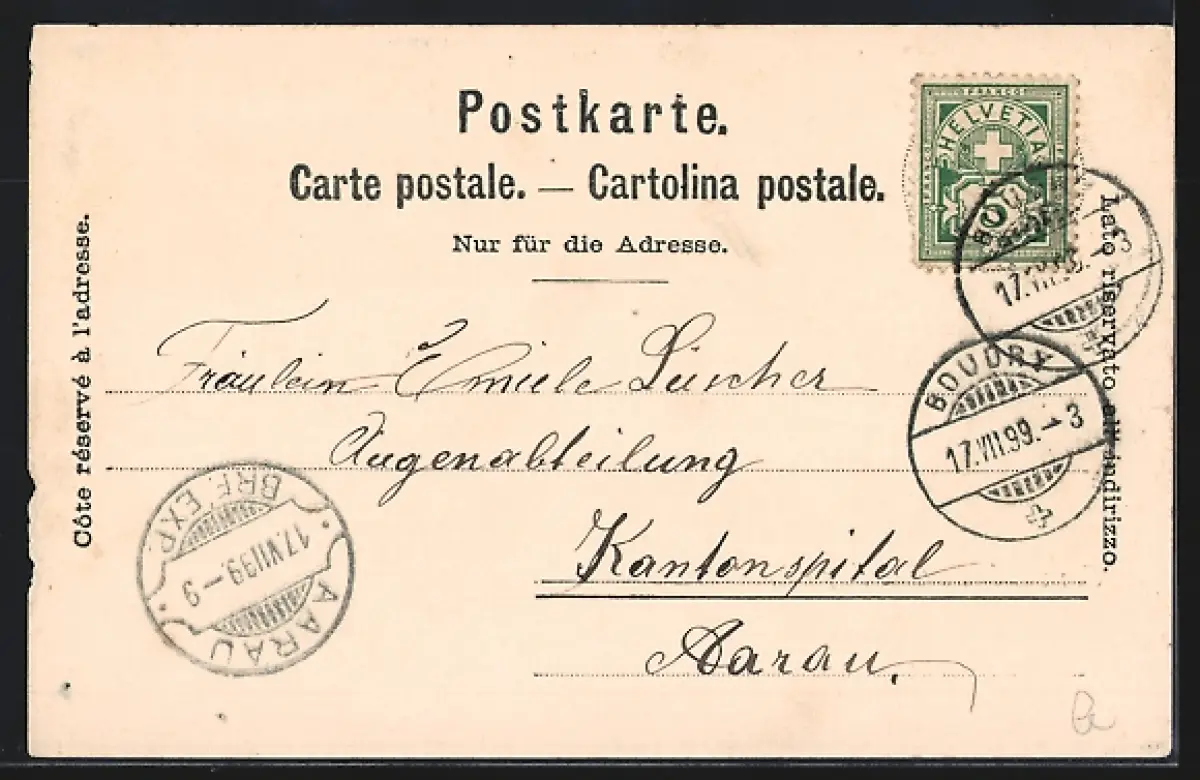 Postkarte.
Carte postale. — Cartolina postale.
Nur für die Adresse.
Côte réservé à l'adresse.
Lato riservato all'indirizzo.
FRANCO
HELVETIA
5
BOUDRY
17.VII.99. - 3
BOUDRY
17.VII.99. - 3
Fräulein Emilie Lüscher
Augenabteilung
Kantonspital
Aarau.
AARAU
17.VII.99. - 9
BRF. EXP.